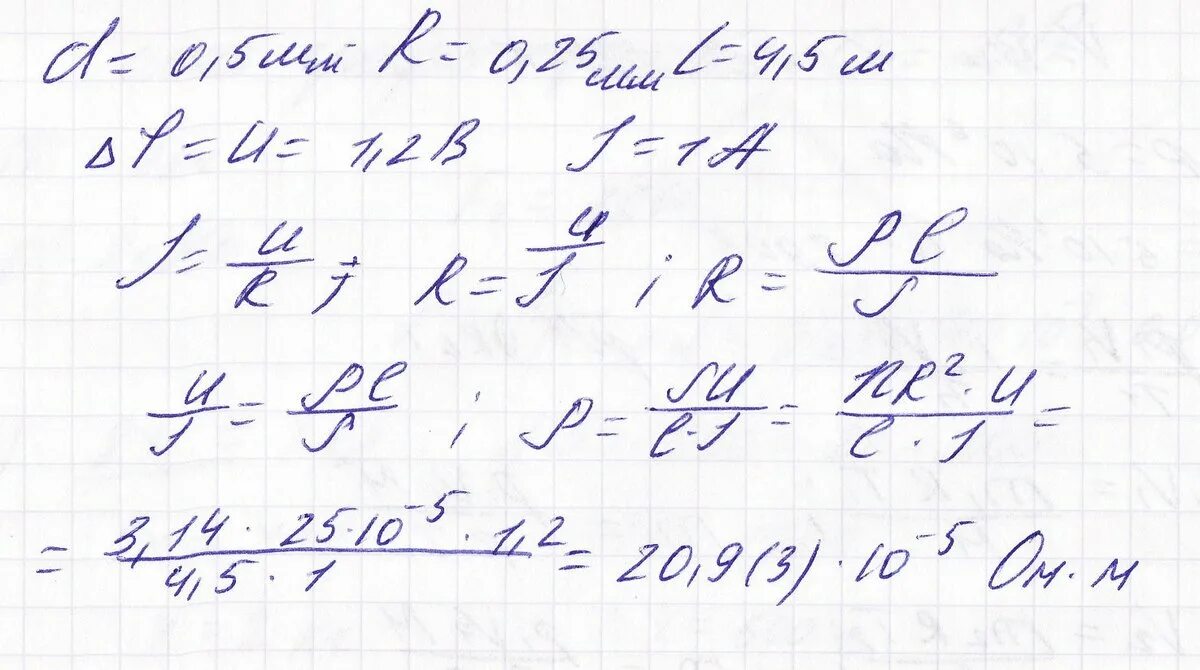 d = 0,5мм R = 0,25мм l = 4,5 м
Δφ = U = 1,2 В I = 1 А
I = U/R ; R = U/I ; R = ρl/S
U/I = ρl/S ; ρ = SU/l·I = πR²·U/l·I =
= 3,14 · 25·10⁻⁵ · 1,2/4,5 · 1 = 20,9(3) · 10⁻⁵ Ом·м